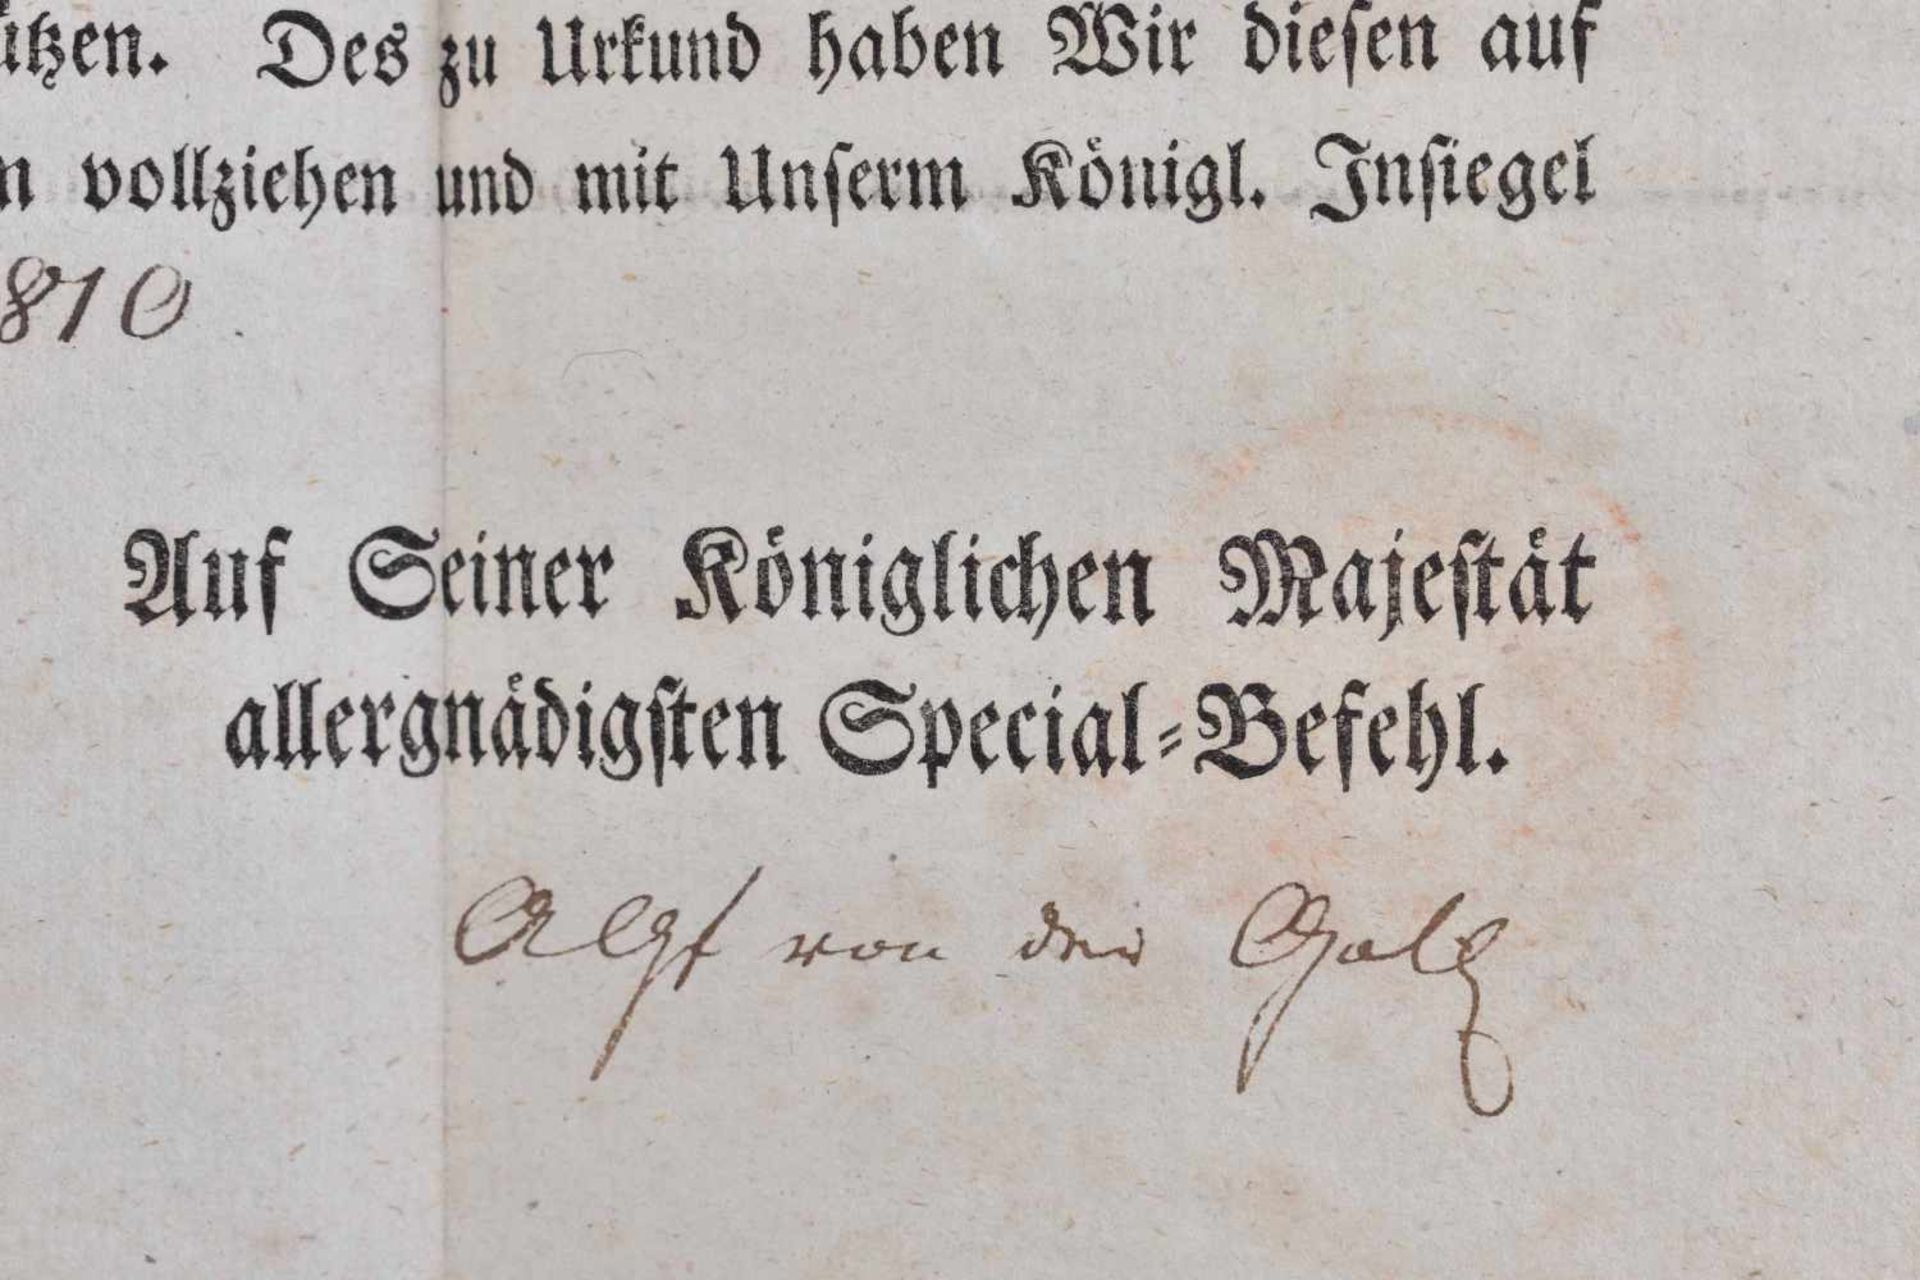 ützen. Des zu Urkund haben Wir diesen auf
n vollziehen und mit Unserm Königl. Insiegel
810
Auf Seiner Königlichen Majestät
allergnädigsten Special-Befehl.
von der Goltz